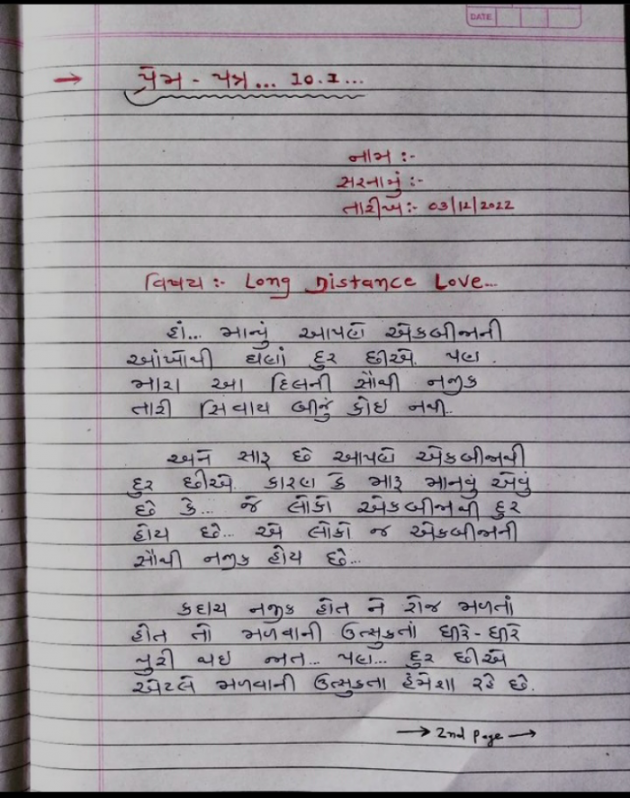 DATE
→ પ્રેમ - પત્ર... 10.1...
નામ :-
સરનામું :-
તારીખ :- 03/12/2022
વિષય :- Long Distance Love...
હાં... માન્યું આપણે એકબીજાની
આંખોથી ઘણાં દુર છીએ. પણ.
મારા આ દિલની સૌથી નજીક
તારી સિવાય બીજું કોઇ નથી..
અને સારૂ છે આપણે એકબીજાથી
દુર છીએ. કારણ કે મારૂ માનવું એવું
છે કે... જે લોકો એકબીજાથી દુર
હોય છે... એ લોકો જ એકબીજાની
સૌથી નજીક હોય છે...
કદાચ નજીક હોત ને રોજ મળતાં
હોત તો મળવાની ઉત્સુકતાં ધીરે-ધીરે
પુરી થઇ જાત... પણ... દુર છીએ
એટલે મળવાની ઉત્સુકતા હંમેશા રહે છે.
→ 2nd page →